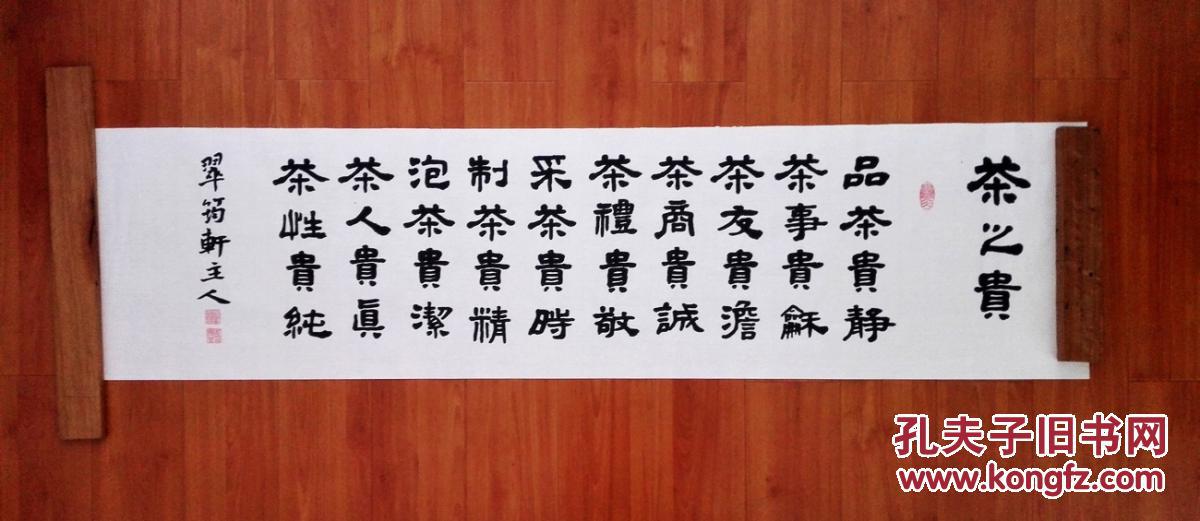 茶之貴
品茶貴静
茶事貴龢
茶友貴澹
茶商貴誠
茶禮貴敬
采茶貴時
制茶貴精
泡茶貴潔
茶人貴真
茶性貴純
翠筠軒主人
孔夫子旧书网
www.kongfz.com